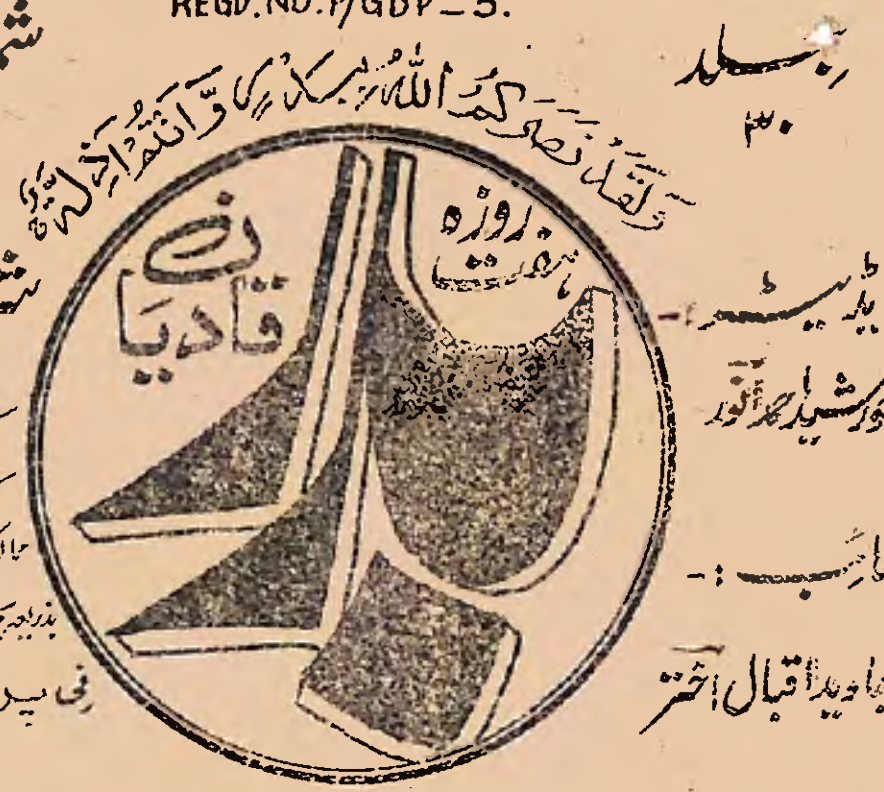 REGD. NO. P/GDP-3.
وَلَقَدْ نَصَرَكُمُ اللّٰهُ بِبَدْرٍ وَّاَنْتُمْ اَذِلَّةٌ
جلد
۳۰
ہفت روزہ
بدر
قادیان
ایڈیٹر :-
خورشید احمد انور
نائب :-
جاوید اقبال اختر